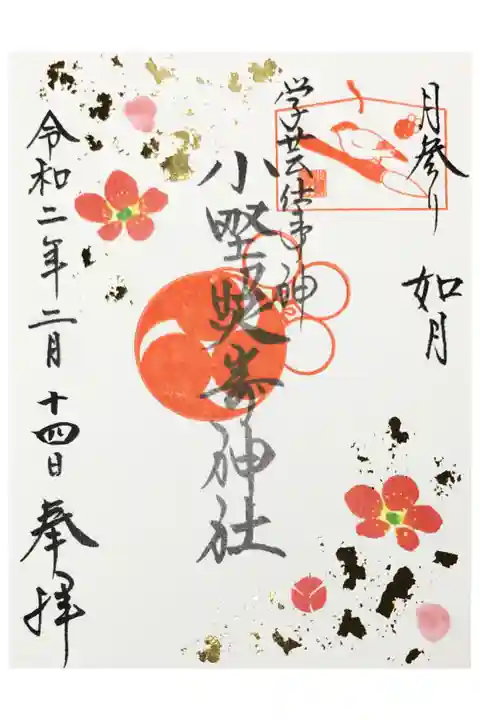 月参り 如月
学芸仕事神
小野照崎神社
令和二年二月十四日 奉拝